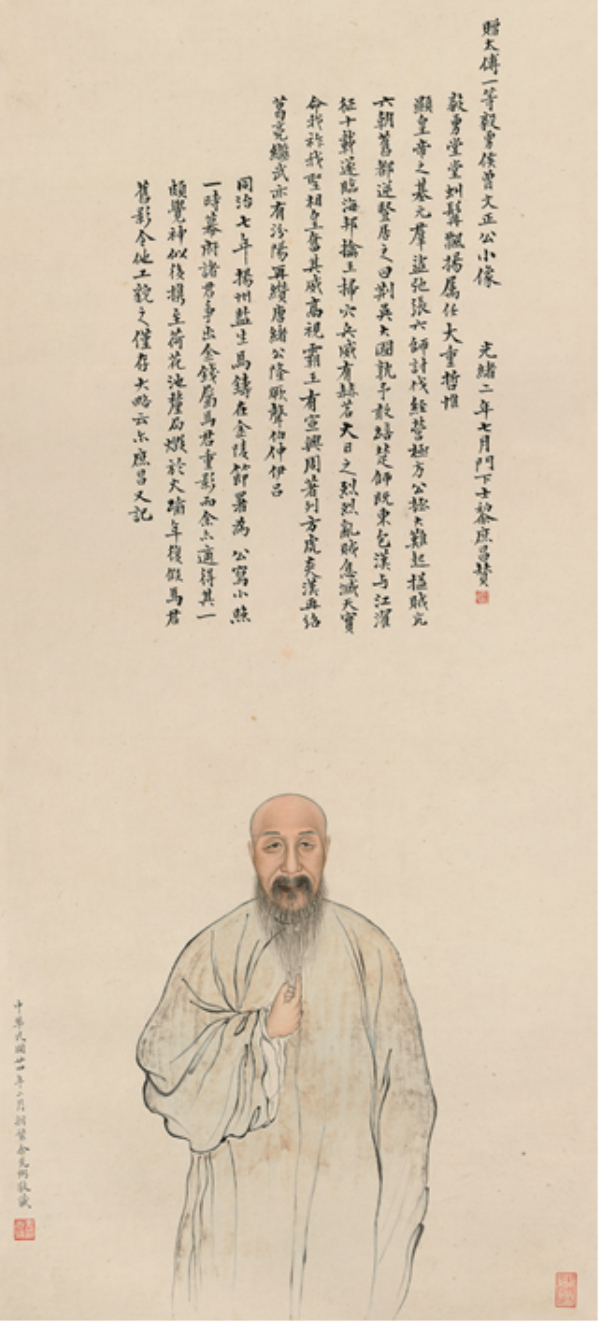 贈太傅一等毅勇侯曾文正公小像　光緒二年七月門下士黎庶昌贊
毅勇堂堂虯髯飄揚属任大重哲惟
顯皇帝之基元羣盜弛張六師討伐經營極方公拯大難起搤賊亢
六朝舊都逆豎居之曰荆與吳大國孰予敢踣楚師既東包漢与江濯
征十載遂臨海邦擒王掃穴兵威有赫若大日之烈烈亂賊息滅天寶
命我祚我聖相皇奮其威高視霸王有宣興周著列方虎炎漢再絡
葛亮繼武亦有汾陽再纘唐緒公隆厥聲伯仲伊吕
同治七年揚州監生馬鑄在金陵節署為公寫小照
一時幕府諸君爭出金錢属馬君重影而余亦適得其一
頗覺神似後攜至荷花池釐局燬於火踰年復假馬君
舊影令他工貌之僅存大略云尒庶昌又記
中華民國廿四年二月
敬藏